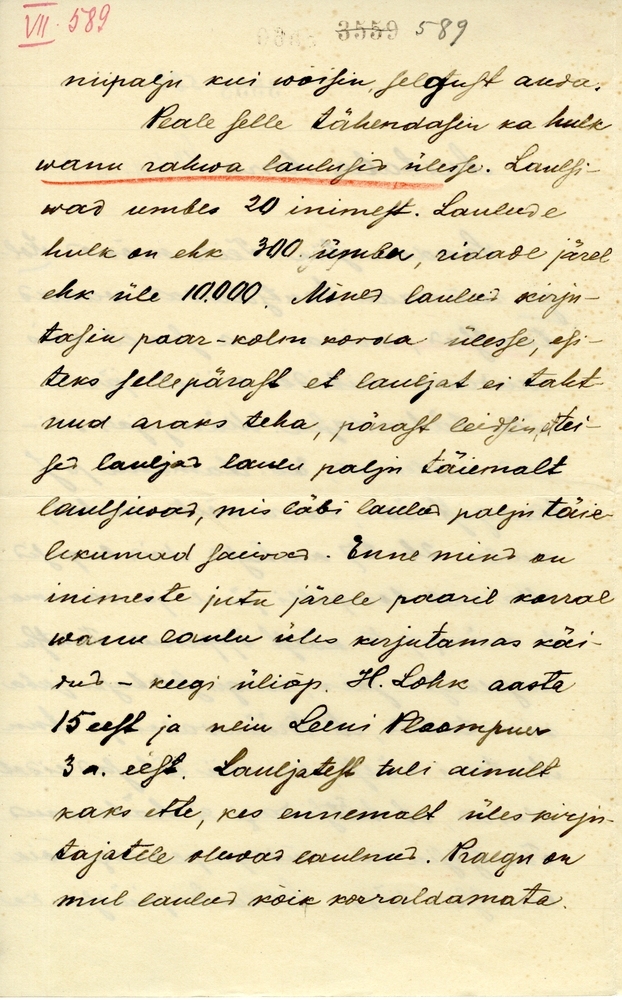 VII 589
3559 589
niipalju kui wõisin, selgust anda.
Peale selle tähendasin ka hulk
wanu rahwa laulusid ülesse. Laulsi-
wad umbes 20 inimest. Laulude
hulk on ehk 300 ümber, ridade järel
ehk üle 10.000. Mõned laulud kirju-
tasin paar-kolm korda ülesse, esi-
teks sellepärast et lauljat ei taht-
nud araks teha, pärast leidsin, et tei-
sed lauljad laulu palju täiemalt
laulsiwad, mis läbi laulud palju täie-
likumad saiwad. Enne mind on
inimeste jutu järele paaril korral
wanu laulu üles kirjutamas käi-
dud – keegi üliõp. H. Lohk aasta
15 eest ja neiu Leeni Ploompuu
3 a. eest. Lauljatest tuli ainult
kaks ette, kes ennemalt üleskirju-
tajatele olewad laulnud. Praegu on
mul laulud kõik korraldamata.